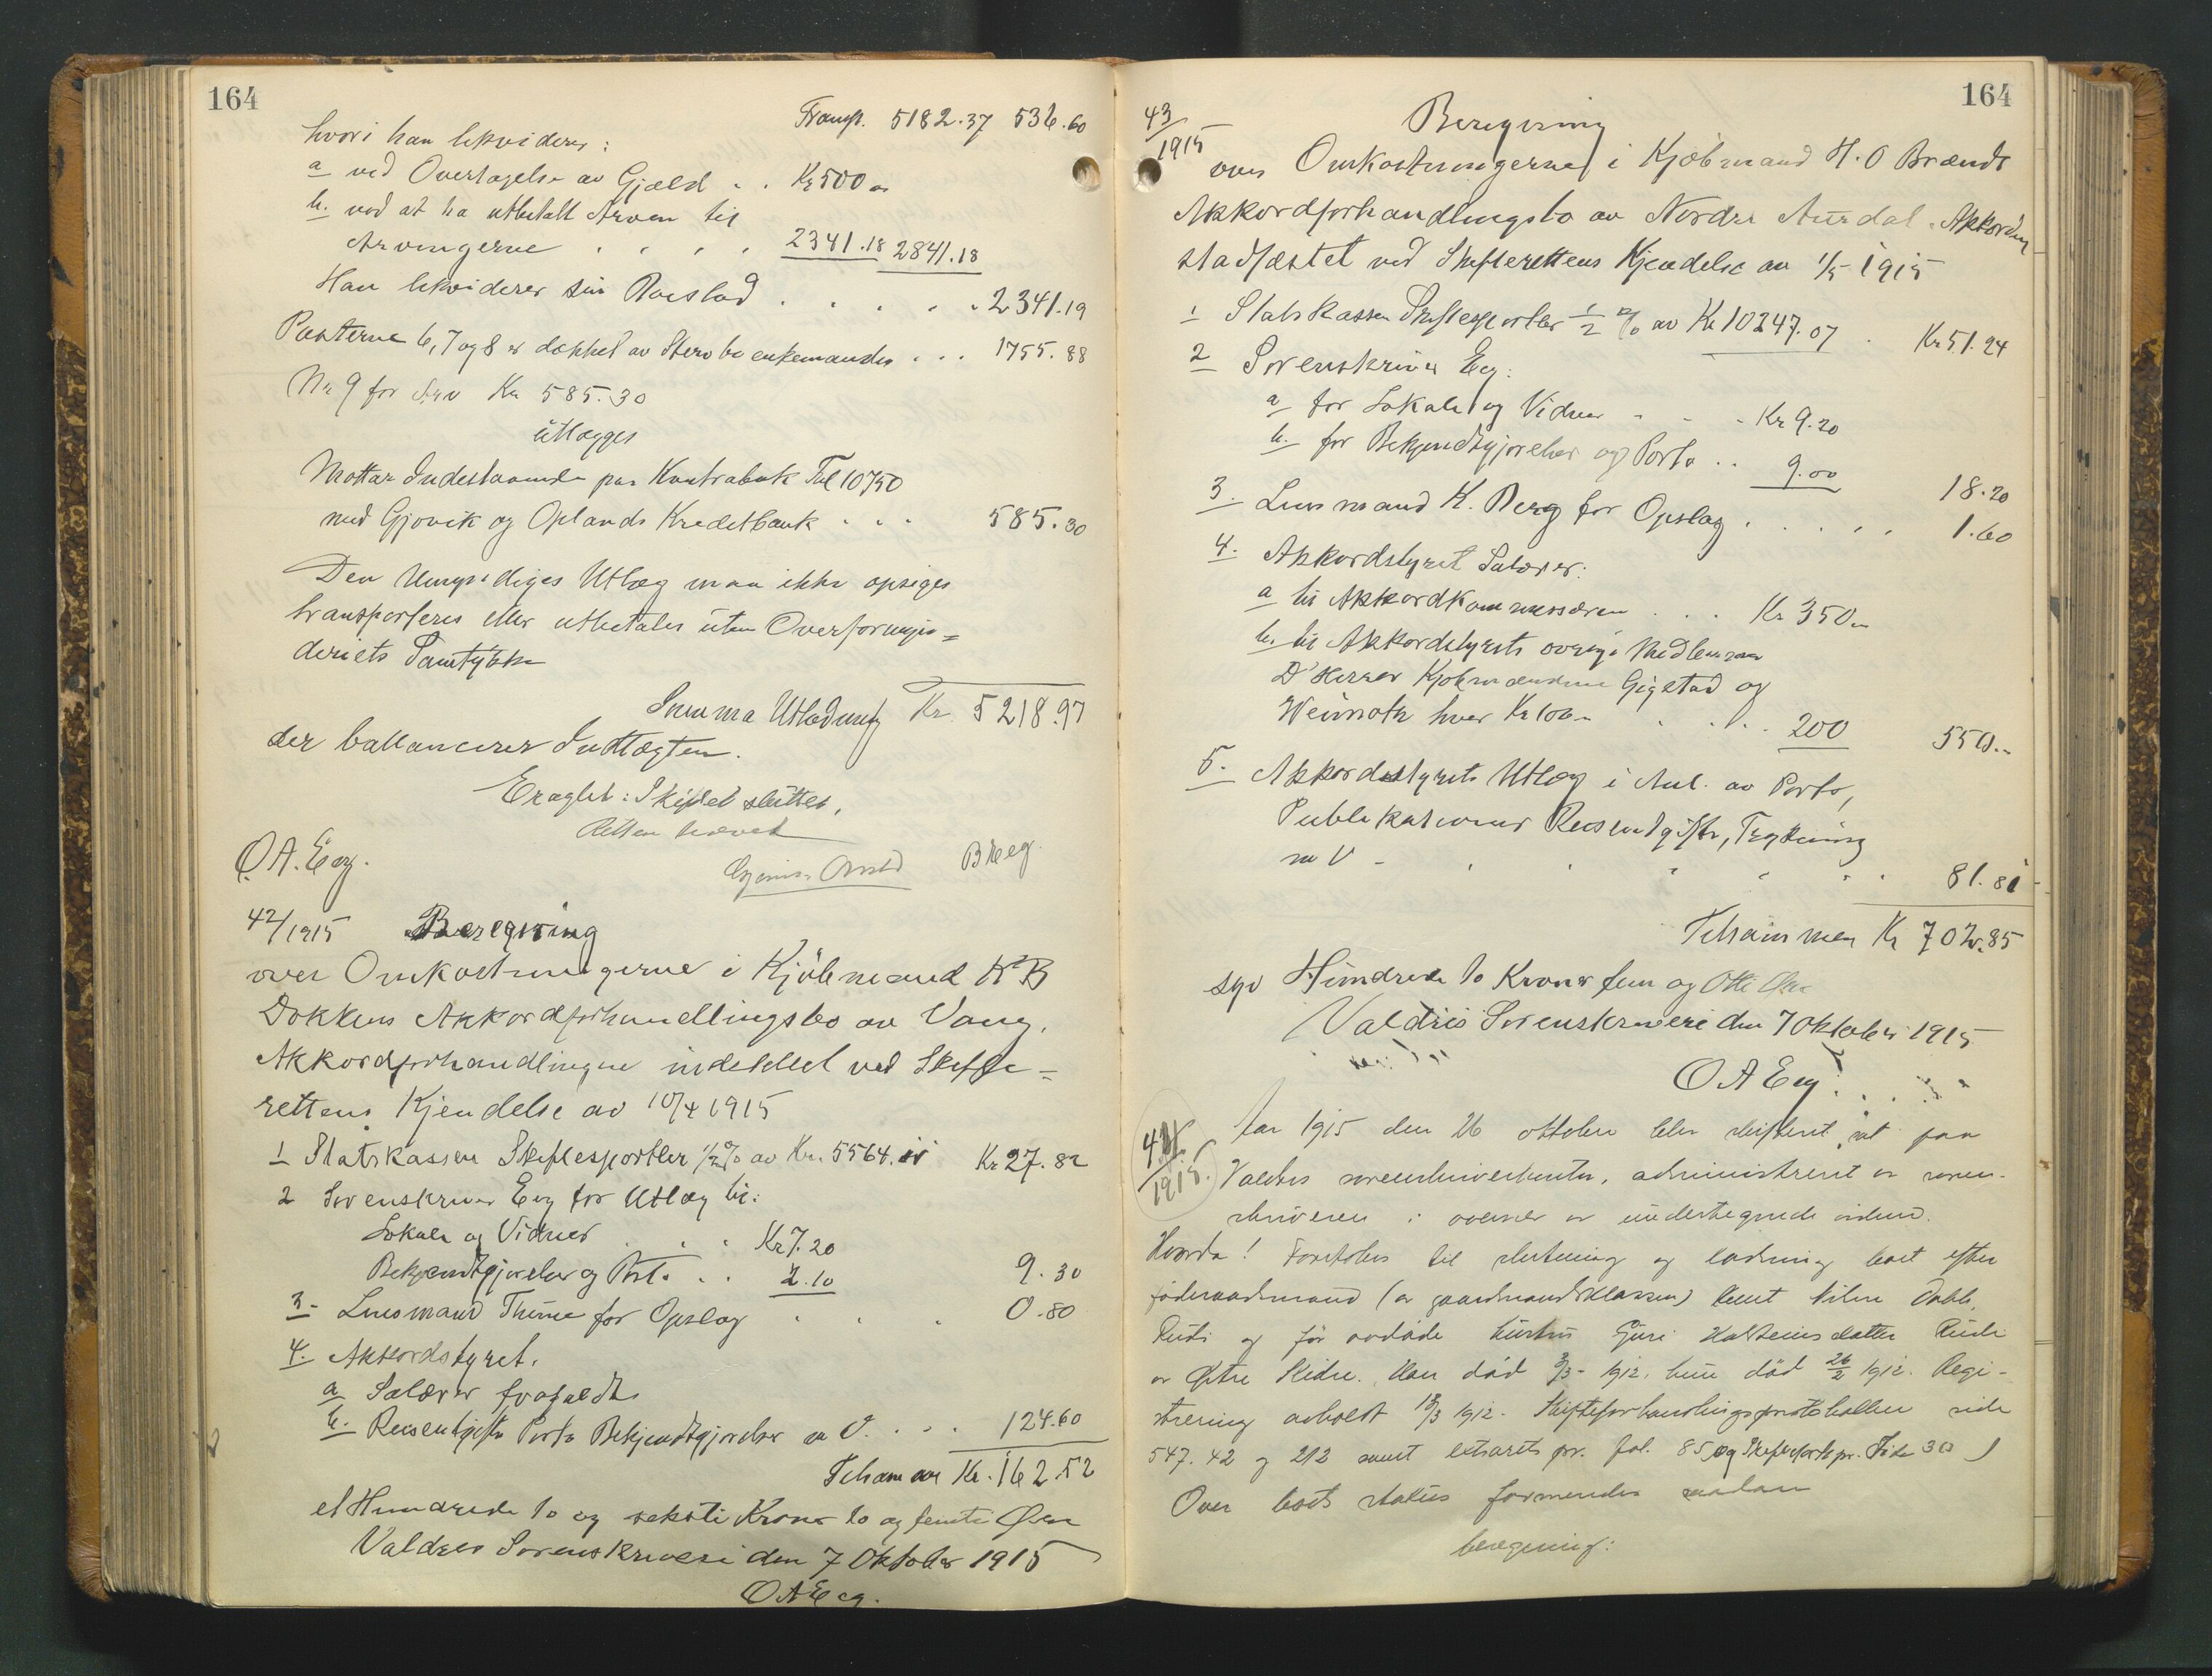 164
Transp. 5182.37 536.60
hvori han likviderer:
a ved Overtagelse av Gjæld . . Kr 500 "
b. ved at ha utbetalt Arven til
Arvingerne . . . . 2341.18 2841.18
Han likviderer sin Boeslod . . . . . 2341.19
Posterne 6, 7 og 8 er dækket av Stervboenkemanden . . . 1755.88
Nr 9 for Arv Kr 585.30
utlægges
Mottar Indestaaende paa Kontrabok Fol 10750
med Gjøvik og Oplands Kreditbank . . . 585.30
Den Umyndiges Utlæg maa ikke opsiges
transporteres eller utbetales uten Overformynderiets Samtykke
Summa Utlodning Kr. 5218.97
der ballancerer Indtægten.
Eragtet: Skiftet sluttet.
Retten hævet
O.A. Eeg.
B Eeg.
42/1915 Beregning
over Omkostningerne i Kjöbmand K B
Dokkens Akkordforhandlingsbo av Vang.
Akkordforhandlingene indstillet ved Skifte=
rettens Kjendelse av 10/4 1915
1 Statskassen Skiftesportler 1/2 % av Kr. 5564.11 Kr 27.82
2 Sorenskriver Eeg for Utlæg til:
Lokale og Vidner . . . Kr 7.20
Bekjendtgjørelser og Porto . . 2.10 9.30
3- Lensmand Thune for Opslag . . . 0.80
4. Akkordstyret.
a Salærer frafaldt
b. Reiseutgifter Porto Bekjendtgjørelser m V. . . . 124.60
Tilsammen Kr. 162.52
et Hundrede to og seksti Kroner to og femti Øre
Valdres Sorenskriveri den 7 Oktober 1915
O A Eeg.
164
43/1915 Beregning
over Omkostningerne i Kjøbmand H. O Brændt
Akkordforhandlingsbo av Nordre Aurdal. Akkorden
stadfæstet ved Skifterettens Kjendelse av 1/5 1915
1 Statskassen Skiftesportler 1/2 % av Kr 10247.07 . Kr 51.24
2 Sorenskriver Eeg:
a for Lokale og Vidner - - - Kr 9.20
b. for Bekjendtgjørelser og Porto . . 9.00 18.20
3. Lensmand K. Berg for Opslag . . . . . 1.60
4. Akkordstyret Salærer:
a til Akkordkommissæren . . . Kr 350 "
b. til Akkordstyrets øvrige Medlemmer
D' Herrer Kjøbmændene Gigstad og
hver Kr 100 " . . . . 200 550. "
5. Akkordstyrets Utlæg i Anl. av Porto,
Publikationer Reiseutgifter, Trykning
m V - . . . . . . 81.81
Tilsammen Kr 702.85
syv Hundrede to Kroner fem og Otti Øre
Valdres Sorenskriveri den 7 Oktober 1915
O A Eeg.
44/1915.
Aar 1915 den 26 oktober blev skifteret sat paa
Valdres sorenskriverkontor, administreret av soren-
skriveren i overvær av undertegnede vidner.
Hvorda! Foretokes til slutning og lodning boet efter
føderaadsmand (av gaardmandsklassen) Knut Nilsen
Rudi og før avdøde hustru Guri Halsteinsdatter Rudi
av Østre Slidre. Han död 3/3- 1912, hun död 26/2 1912. Regi-
strering avholdt 13/3 1912. Skifteforhandlingsprotokollen side
547. 42 og 212 samt extraretspr. fol. 85 og Skifteforh.pr. Side 30)
Over boets status formendes saadan
beregning: